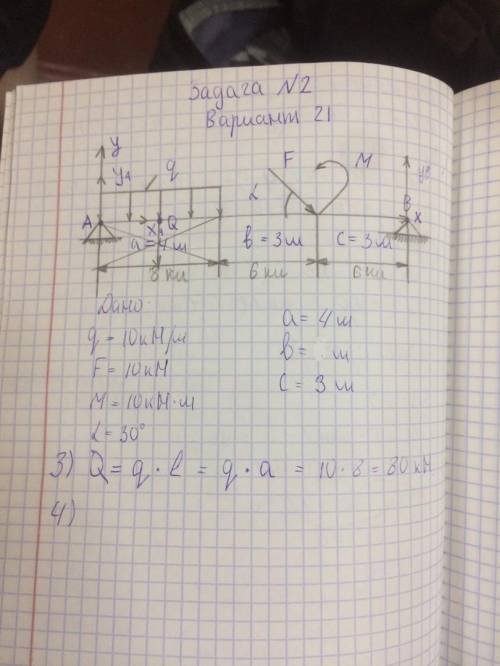 Задача N2
Вариант 21
y
yA
q
F
M
yB
α
A
X
Q
B
X
a = 4 м
b = 3 м
c = 3 м
8 кл
6 кл
6 кл
Дано:
q = 10 кН/м
a = 4 м
F = 10 кН
b = м
M = 10 кН·м
c = 3 м
α = 30°
3) Q = q · l = q · a = 10 · 8 = 80 кН
4)